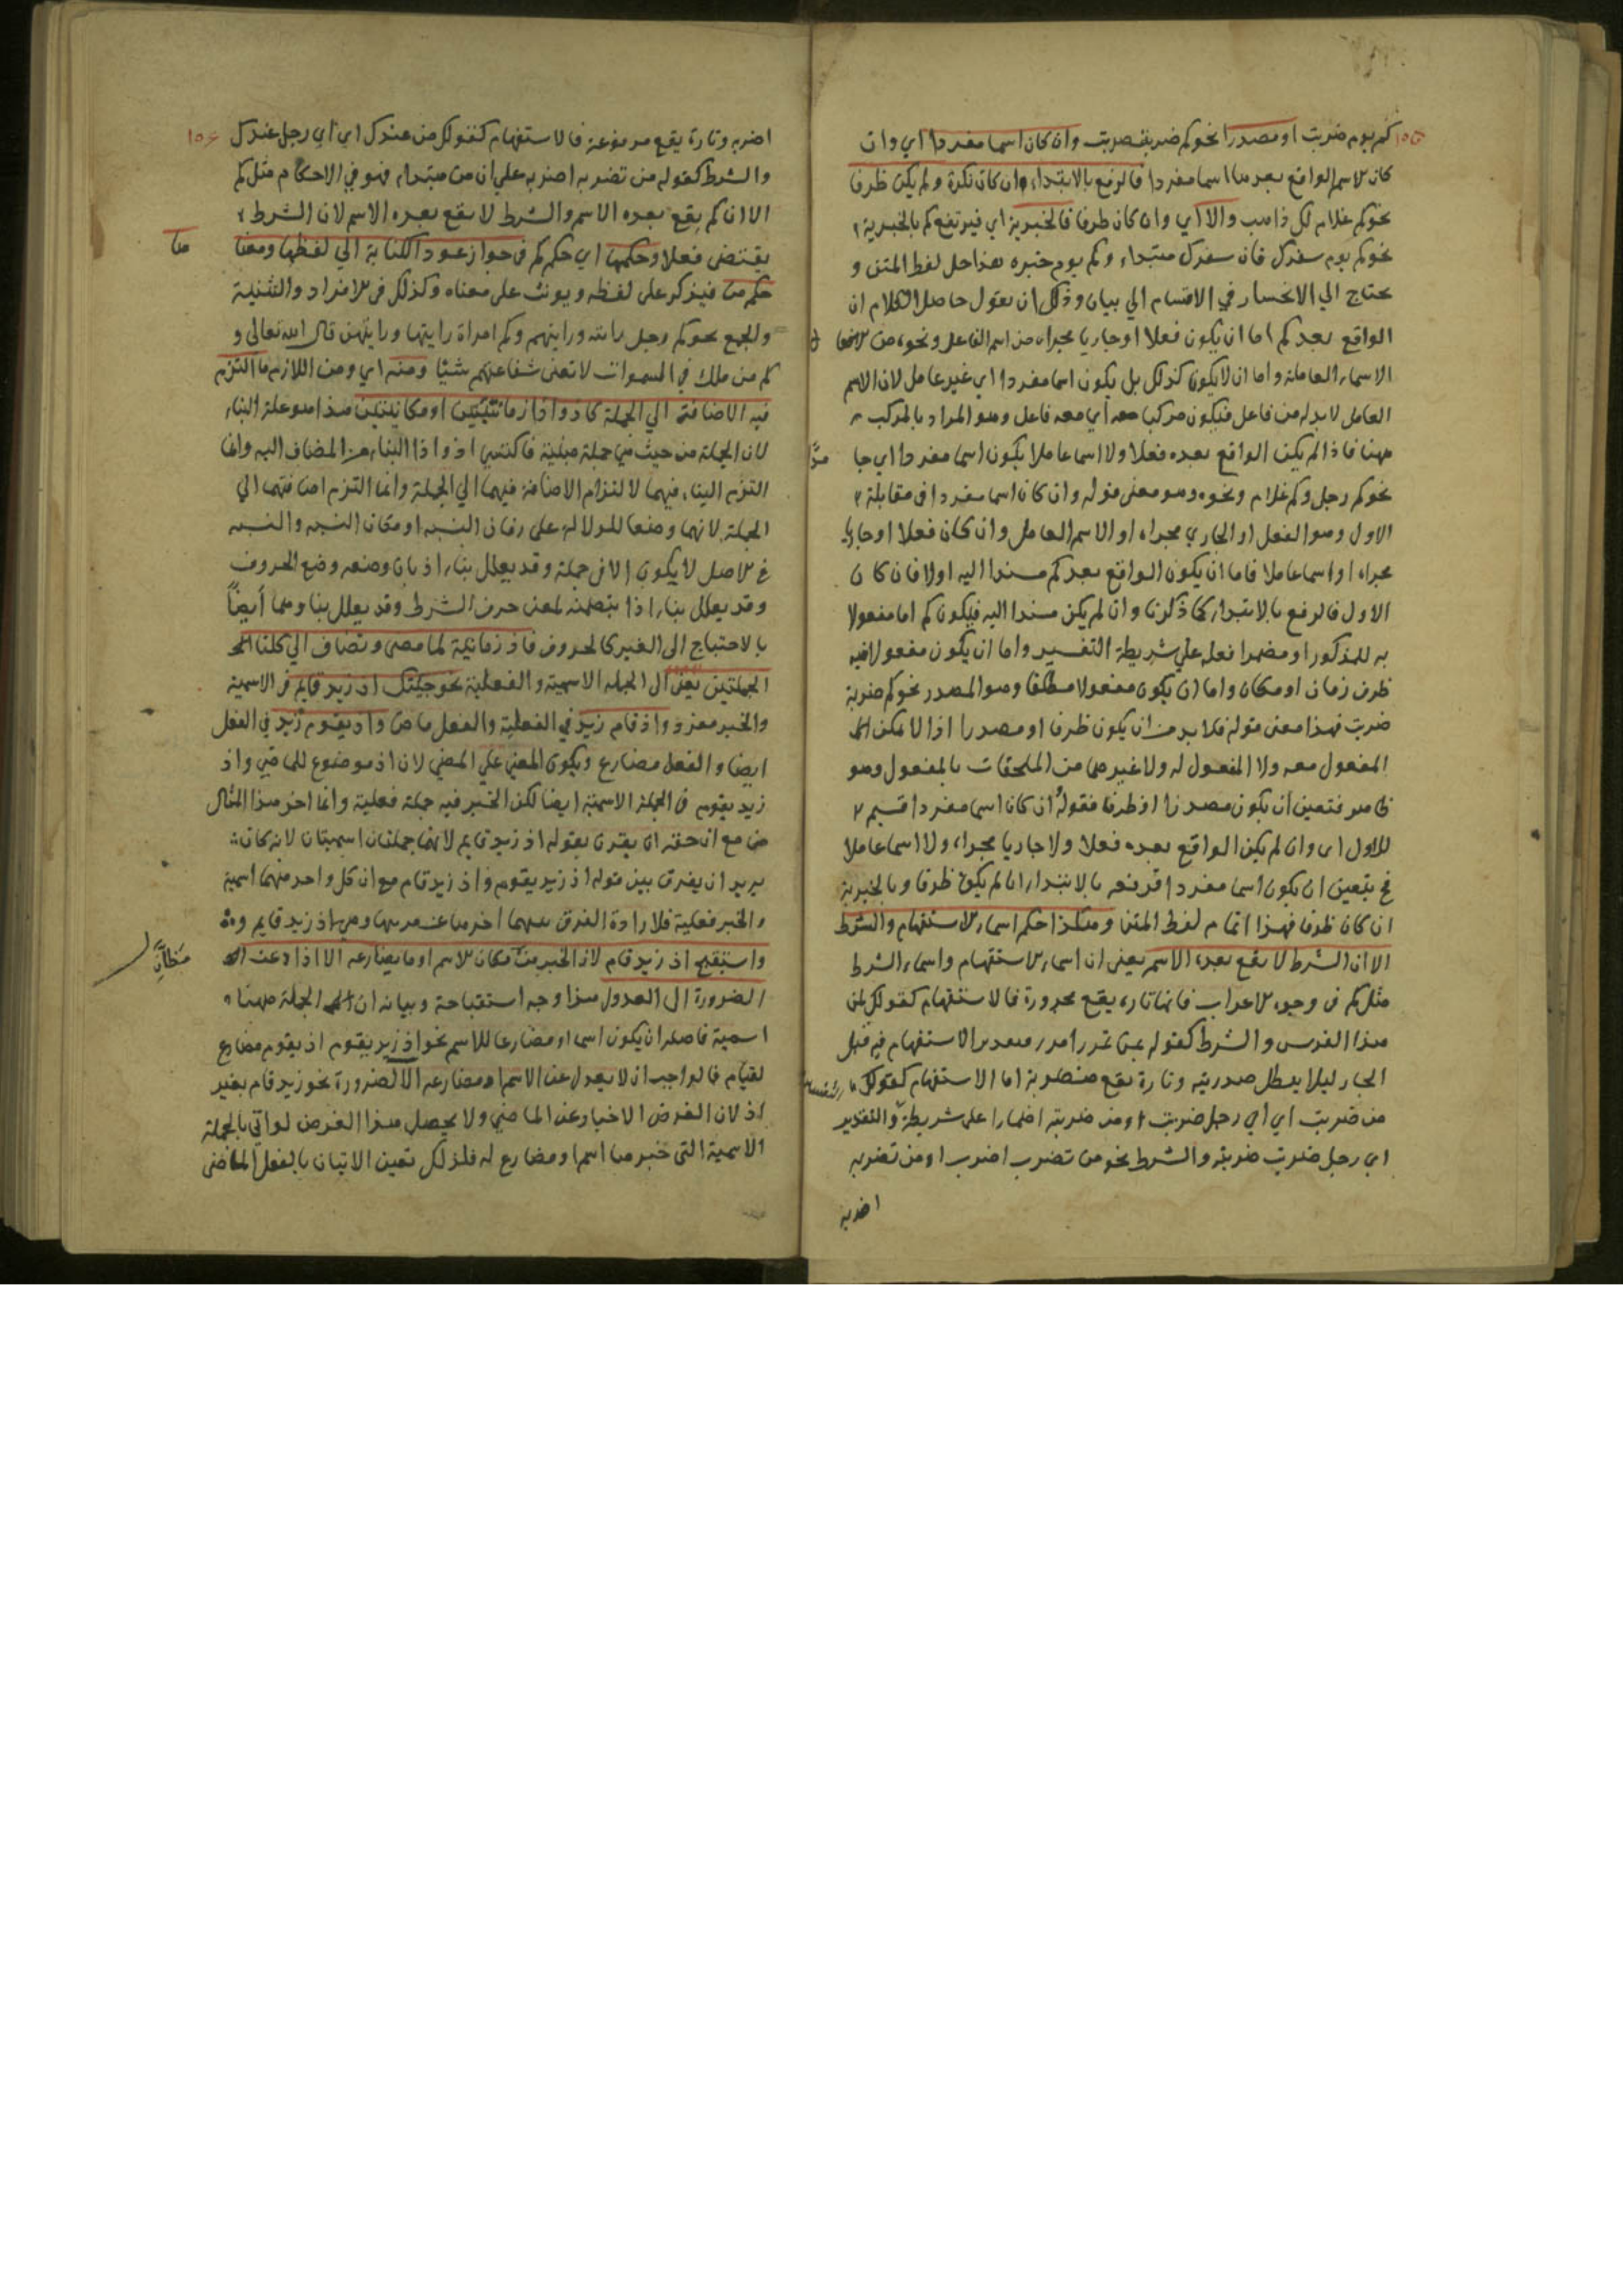 كم يوم ضربت او مصدرا نحو كم ضربة ضربت وان كان اسما مفردا اي وان
كان الاسم الواقع بعدها اسما مفردا فالرفع بالابتداء ان كان نكرة ولم يكن ظرفا
نحو كم غلام لك ذاهب والا اي وان كان ظرفا فالخبرية اي فيرتفع كم بالخبرية
نحو كم يوم سفرك فان سفرك مبتداء وكم يوم خبره هذا حل لفظ المتن و
يحتاج الي الانحصار في الاقسام الي بيان وذلك ان نقول حاصل الكلام ان
الواقع بعد كم اما ان يكون فعلا او جاريا مجراه من اسم الفاعل ونحوه من
الاسماء العاملة واما ان لا يكون كذلك بل يكون اسما مفردا اي غير عامل لان الاسم
العامل لا بد له من فاعل فيكون مركبا معه اي معه فاعل وهو المراد بالمركب
ههنا فاذا لم يكن الواقع بعده فعلا ولا اسما عاملا يكون اسما مفردا
نحو كم رجل وكم غلام ونحوه وهو معنى قوله وان كان اسما مفردا في مقابلة
الاول وهو الفعل او الجاري مجراه او الاسم العامل وان كان فعلا او جاريا
مجراه او اسما عاملا فاما ان يكون الواقع بعد كم مسندا اليه او لا فان كان
الاول فالرفع بالابتداء كما ذكرنا وان لم يكن مسندا اليه فيكون كم اما مفعولا
به للمذكور او مضمرا فعله علي شريطة التفسير واما ان يكون مفعولا فيه
ظرف زمان او مكان واما ان يكون مفعولا مطلقا وهو المصدر نحو كم ضربة
ضربت فهذا معنى قوله فلا بد من ان يكون ظرفا او مصدرا اذ لا يمكن
المفعول معه ولا المفعول له ولا غيرهما من الملحقات بالمفعول وهو
ظاهر فتعين ان يكون مصدرا او ظرفا فقوله ان كان اسما مفردا قسيم
للاول اي وان لم يكن الواقع بعده فعلا ولا جاريا مجراه ولا اسما عاملا
فح يتعين ان يكون اسما مفردا فرفعه بالابتداء ان لم يكن ظرفا وبالخبرية
ان كان ظرفا فهذا اتمام لفظ المتن وهكذا حكم اسماء الاستفهام والشرط
الا ان الشرط لا يقع بعده الاسم يعني ان اسماء الاستفهام واسماء الشرط
مثل كم في وجوه الاعراب فانها تارة يقع مجرورة فالاستفهام كقولك لمن
هذا الفرس والشرط كقوله بمن تمرر امرر الاستفهام فيه قبل
الجار ليلا يبطل صدريته وتارة يقع منصوبة اما الاستفهام كقولك
من ضربت اي اي رجل ضربت او من ضربته اضمارا على شريطة والتقدير
اي رجل ضربت ضربته والشرط نحو من تضرب اضرب او من تضربه
اضربه
اضربه وتارة يقع مرفوعة فالاستفهام كقولك من عندك اي اي رجل عندك
والشرط كقوله من تضربه اضربه علي ان من مبتداء فهو في الاحكام مثل كم
الا ان كم يقع بعده الاسم والشرط لا يقع بعده الاسم لان الشرط
يقتضي فعلا وحكمها اي حكم كم في جواز عود الكناية الي لفظها ومعناها
حكم من فيذكر على لفظه ويونث على معناه وكذلك في الافراد والتثنية
والجمع نحو كم رجل رايته ورايتهم وكم امراة رايتها ورايتهن قال الله تعالى و
كم من ملك في السموات لا تغني شفاعتهم شيئا ومنه اي ومن اللازم ما التزم
فيه الاضافة الي الجملة كاذ واذا زمانيتين او مكانيتين هذا هو علة البناء
لان الجملة من حيث هي جملة مبنية فاكتسى اذ واذا البناء من المضاف اليه وانما
التزم البناء فيهما لالتزام الاضافة فيهما الي الجملة وانما التزم اضافتهما الي
الجملة لانهما وضعا للدلالة على زمان النسبة او مكان النسبة والنسبة
في الاصل لا يكون الا في جملة وقد يعلل بناء اذ بان وضعه وضع الحروف
وقد يعلل بناء اذا بتضمنه لمعنى حرف الشرط وقد يعلل بناؤهما ايضاً
بالاحتياج الى الغير كالحروف فاذ زمانية لما مضى وتضاف الي كلتا
الجملتين يعني الى الجملة الاسمية والفعلية نحو جئتك اذ زيد قايم في الاسمية
والخبر مفرد واذ قام زيد في الفعلية والفعل ماض واذ يقوم زيد في الفعل
ايضا والفعل مضارع ويكون المعني علي المضي لان اذ موضوع للماضي واذ
زيد يقوم في الجملة الاسمية ايضا لكن الخبر فيه جملة فعلية وانما اخر هذا المثال
مع ان حقه ان يقرن بقوله اذ زيد قايم لانهما جملتان اسميتان لانه كان
يريد ان يفرق بين قوله اذ زيد يقوم واذ زيد قام مع ان كل واحد منهما اسمية
والخبر فعلية فلارادة الفرق بينهما اخرها عن اذ زيد قايم
واستقبح اذ زيد قام لان الخبر مكان الاسم او ما يضارعه الا اذا دعت
الضرورة الى العدول هذا وجه استقباحه وبيانه ان الجملة ههنا
اسمية فاصله ان يكون اسما او مضارعا للاسم نحو اذ زيد يقوم اذ يقوم مضارع
لقيام فالواجب ان لا يعدل عن الاسم او مضارعه الا لضرورة نحو زيد قام بغير
اذ لان الغرض الاخبار عن الماضي ولا يحصل هذا الغرض لو اتي بالجملة
الاسمية التي خبرها اسم او مضارع له فلذلك تعين الاتيان بالفعل الماضي